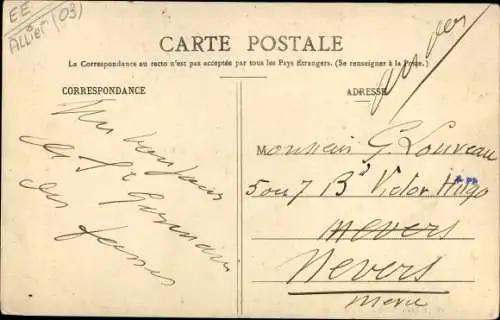 EE
Allier (03)
CARTE POSTALE
La Correspondance au recto n'est pas acceptée par tous les Pays Étrangers. (Se renseigner à la Poste.)
CORRESPONDANCE
ADRESSE
Un bonjour
de St Germain
des fossés
Monsieur G. Louveau
5 ou 7 Bd Victor Hugo
Nevers
Nevers